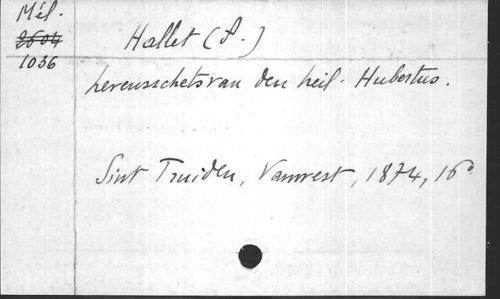 Mél.
2604
1036
Hallet (P.)
Levensschets van den heil. Hubertus.
Sint Truiden, Vanwest, 1874, 16°